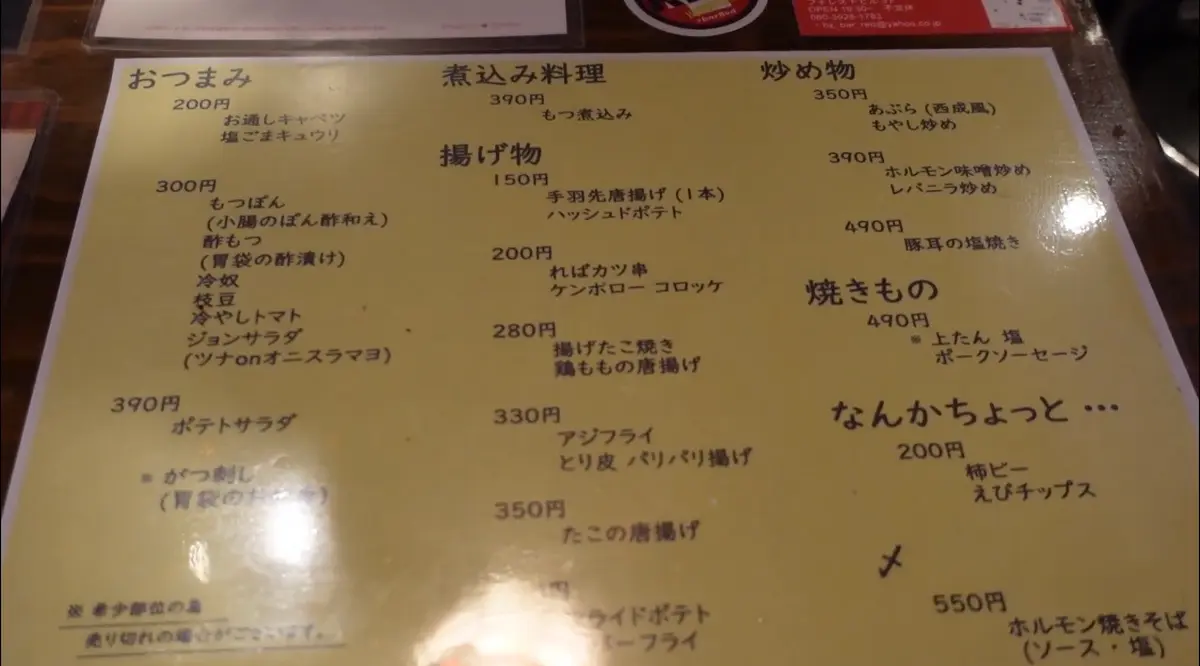 フォレストビル1F
OPEN 18:30~ 不定休
おつまみ
200円
お通しキャベツ
塩ごまキュウリ
300円
もつぽん
(小腸のぽん酢和え)
酢もつ
(胃袋の酢漬け)
冷奴
枝豆
冷やしトマト
ジョンサラダ
(ツナonオニスラマヨ)
390円
ポテトサラダ
※ がつ刺し
(胃袋の
※ 希少部位の為
売り切れの場合がございます。
煮込み料理
390円
もつ煮込み
揚げ物
150円
手羽先唐揚げ (1本)
ハッシュドポテト
200円
ればカツ串
ケンボロー コロッケ
280円
揚げたこ焼き
鶏ももの唐揚げ
330円
アジフライ
とり皮 パリパリ揚げ
350円
たこの唐揚げ
円
ライドポテト
ーフライ
炒め物
350円
あぶら (西成風)
もやし炒め
390円
ホルモン味噌炒め
レバニラ炒め
490円
豚耳の塩焼き
焼きもの
490円
※ 上たん 塩
ポークソーセージ
なんかちょっと …
200円
柿ピー
えびチップス
〆
550円
ホルモン焼きそば
(ソース・塩)